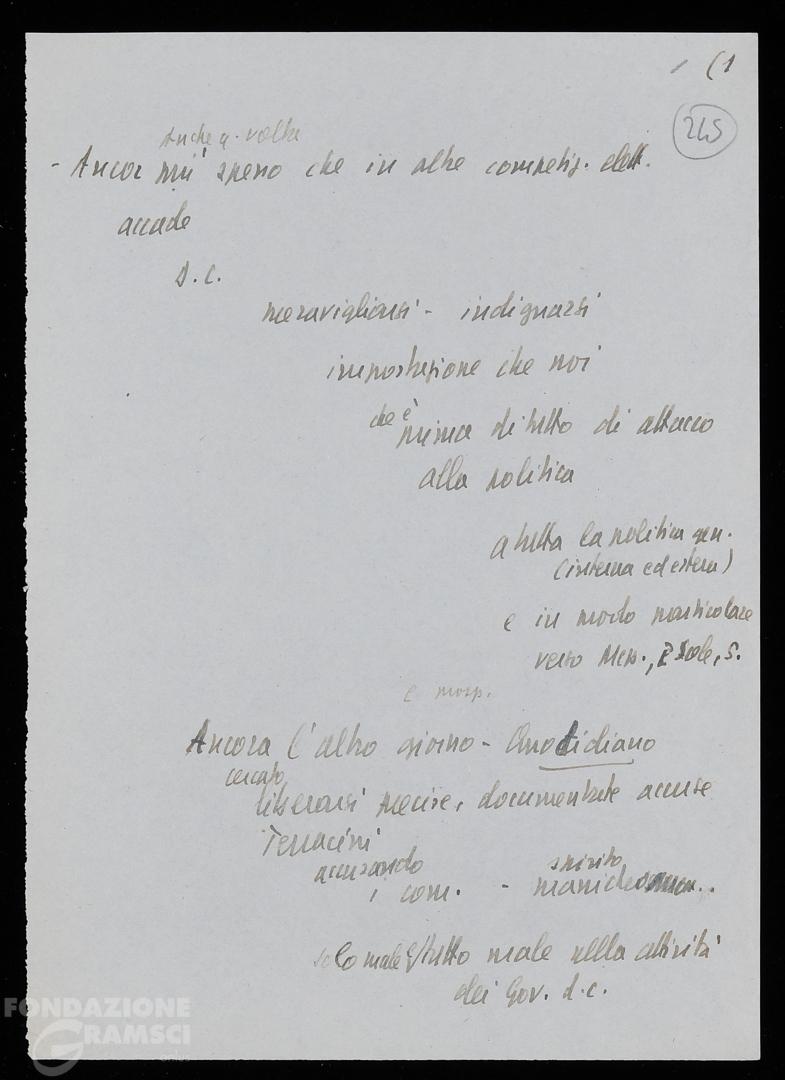 (1
245
Anche q. volta
- Ancor più spesso che in altre competiz. elett.
accade
d.c.
meravigliarsi - indignarsi
impostazione che noi
che è
prima di tutto di attacco
alla politica
a tutta la politica gen.
(interna ed estera)
e in modo particolare
verso Mess., Sole, S.
Ancora l'altro giorno - Quotidiano
cercato
liberarsi precise, documentate accuse
Terracini
accusando spirito
i com. -
solo male tutto male nella attività
dei Gov. d.c.
FONDAZIONE
GRAMSCI
onlus